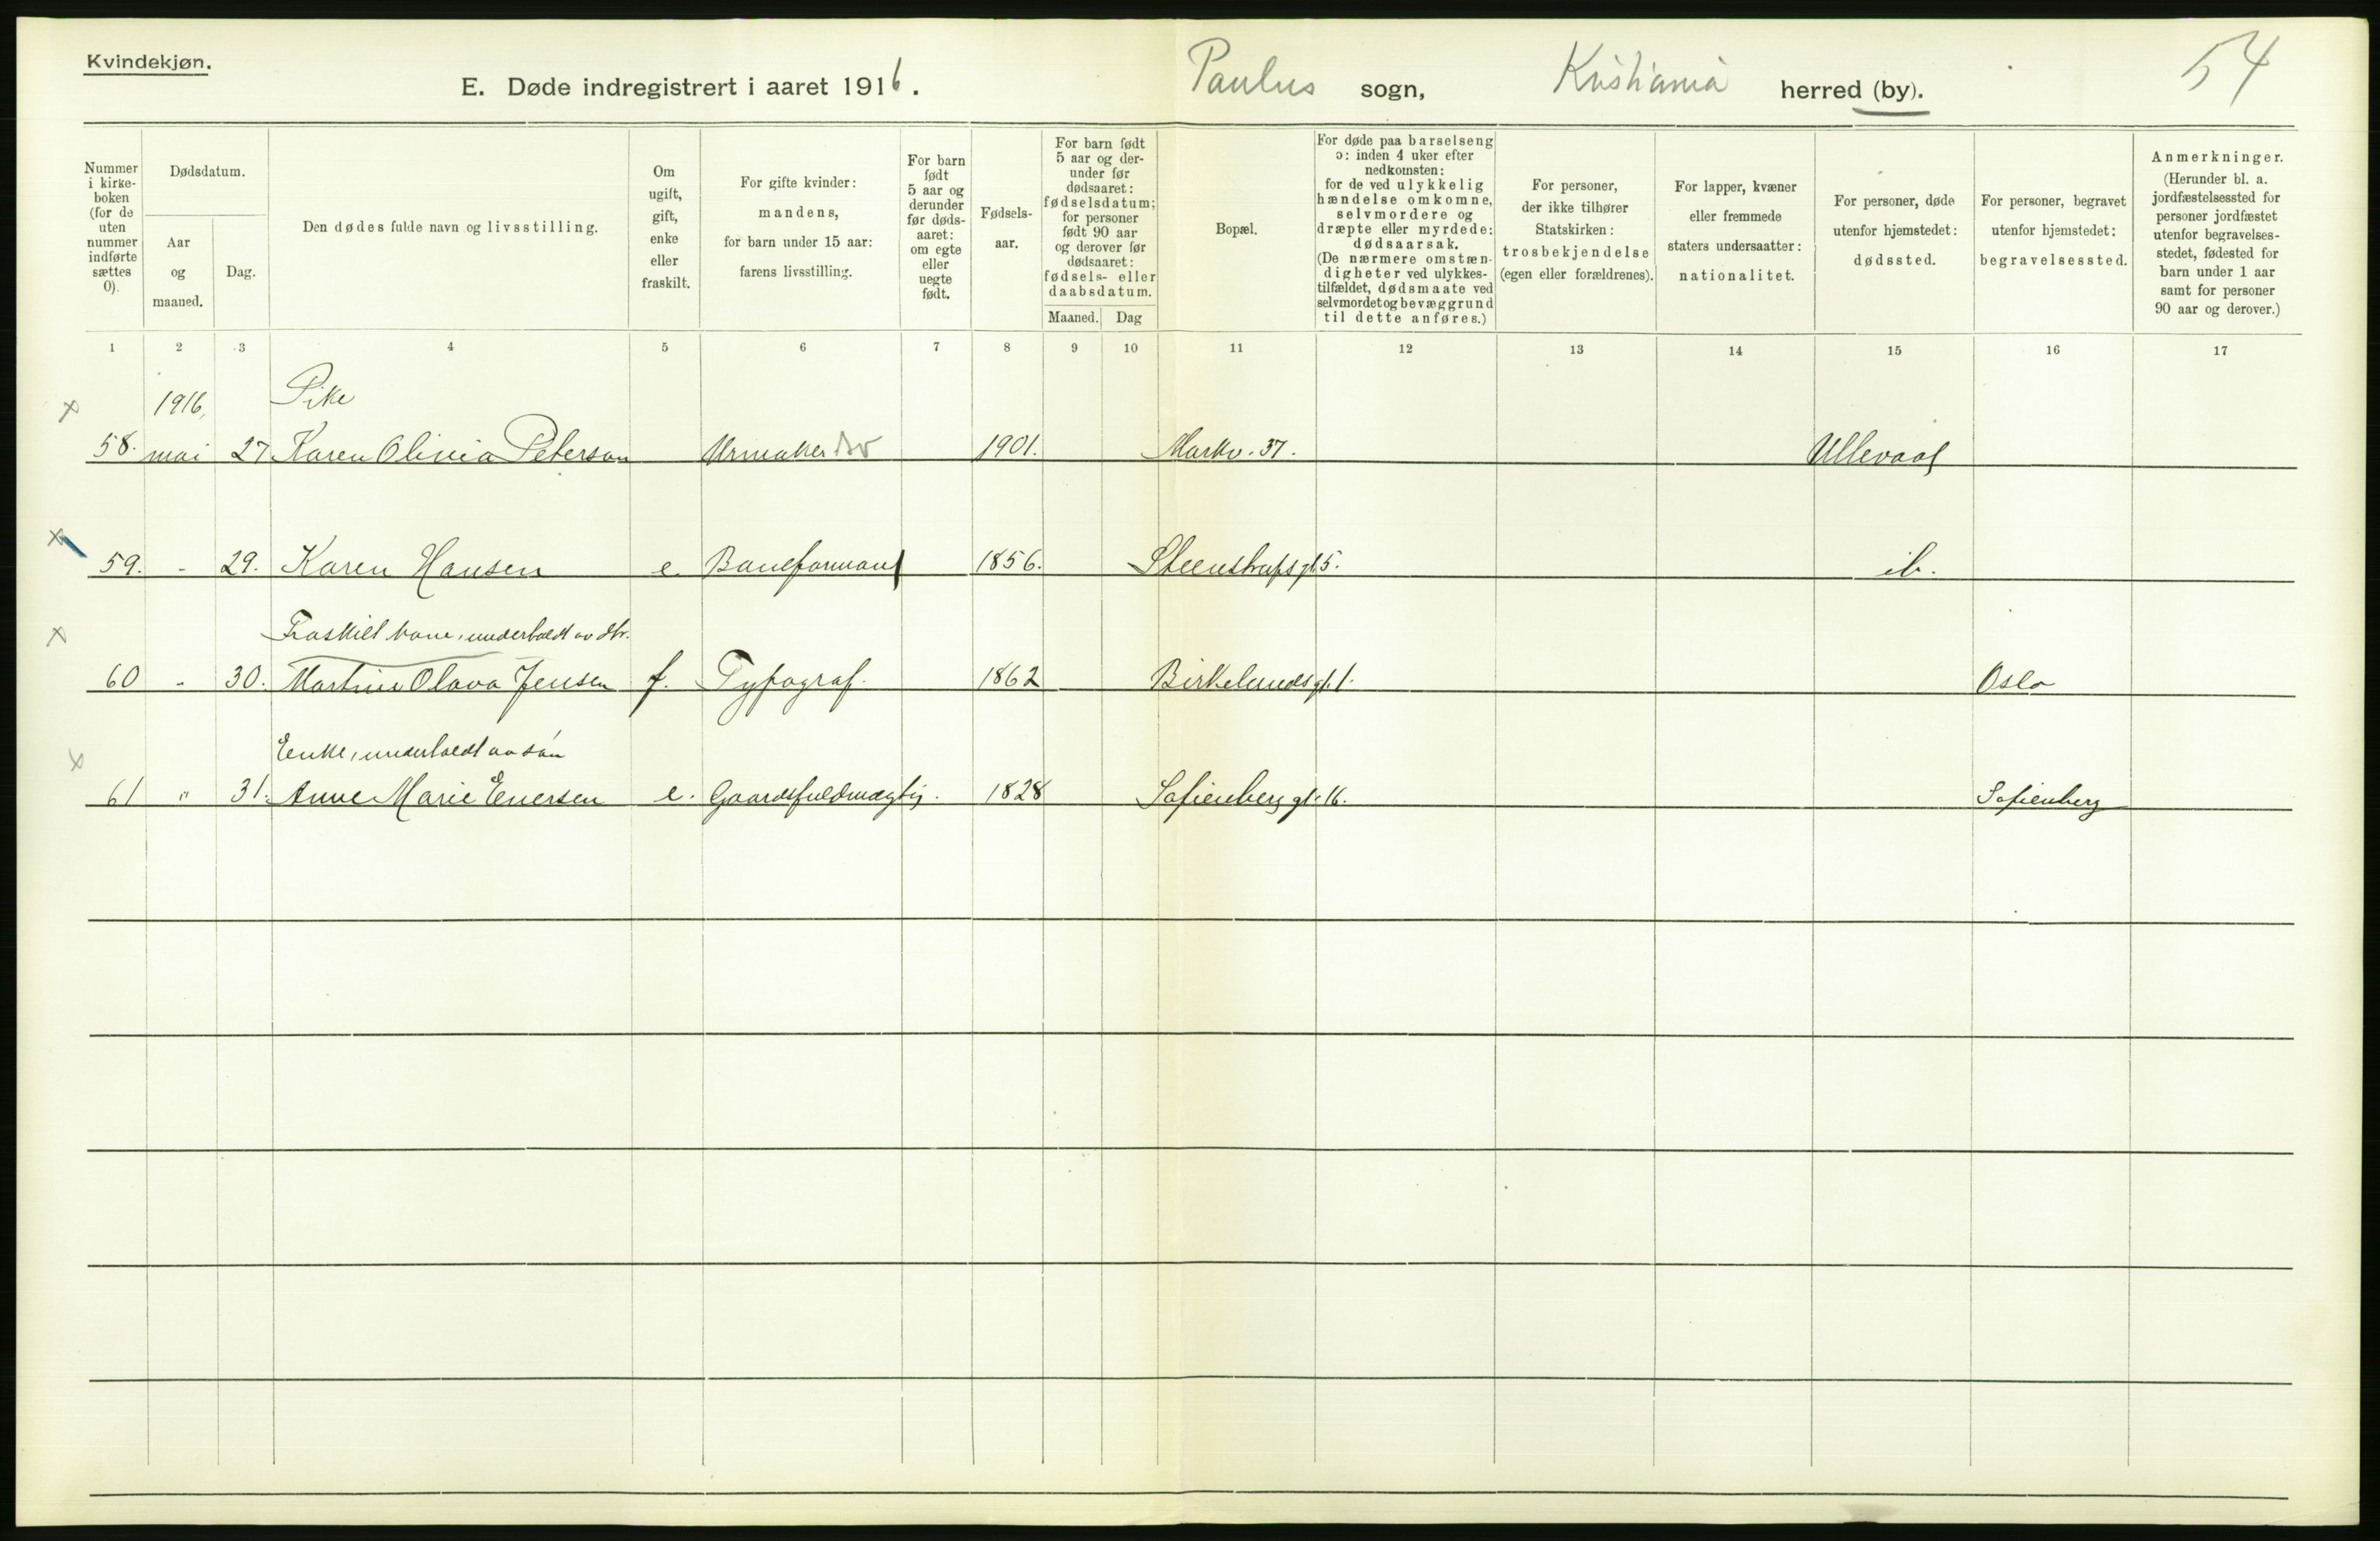 Kvindekjøn.
E. Døde indregistrert i aaret 1916. Paulus sogn, Kristiania herred (by). 54
Nummer i kirkeboken (for de uten nummer indførte sættes 0).
Dødsdatum.
Aar og maaned.
Dag.
Den dødes fulde navn og livsstilling.
Om ugift, gift, enke eller fraskilt.
For gifte kvinder: mandens, for barn under 15 aar: farens livsstilling.
For barn født 5 aar og derunder før dødsaaret: om egte eller uegte født.
Fødselsaar.
For barn født 5 aar og derunder før dødsaaret: fødselsdatum; for personer født 90 aar og derover før dødsaaret: fødsels- eller daabsdatum.
Maaned. Dag
Bopæl.
For døde paa barselseng ɔ: inden 4 uker efter nedkomsten: for de ved ulykkelig hændelse omkomne, selvmordere og dræpte eller myrdede: dødsaarsak. (De nærmere omstændigheter ved ulykkestilfældet, dødsmaate ved selvmordet og bevæggrund til dette anføres.)
For personer, der ikke tilhører Statskirken: trosbekjendelse (egen eller forældrenes).
For lapper, kvæner eller fremmede staters undersaatter: nationalitet.
For personer, døde utenfor hjemstedet: dødssted.
For personer, begravet utenfor hjemstedet: begravelsessted.
Anmerkninger. (Herunder bl. a. jordfæstelsessted for personer jordfæstet utenfor begravelsesstedet, fødested for barn under 1 aar samt for personer 90 aar og derover.)
1 2 3 4 5 6 7 8 9 10 11 12 13 14 15 16 17
1916, Pike
58. mai 27 Karen Olivia Peterson Urmaker 1901. Markv. 37. Ullevaal
59. - 29. Karen Hansen e. Baneformand 1856. Steenstrupsgt 5. ib.
Fraskilt kone, underholdt av dtr.
60 - 30. Martine Olava Jensen f. Typograf. 1862 Birkelundsgt. 1. Oslo
Enke, underholdt av søn
61 " 31. Anne Marie Enersen e. Gaardsfuldmægtig. 1828 Sofienberggt. 16. Sofienberg